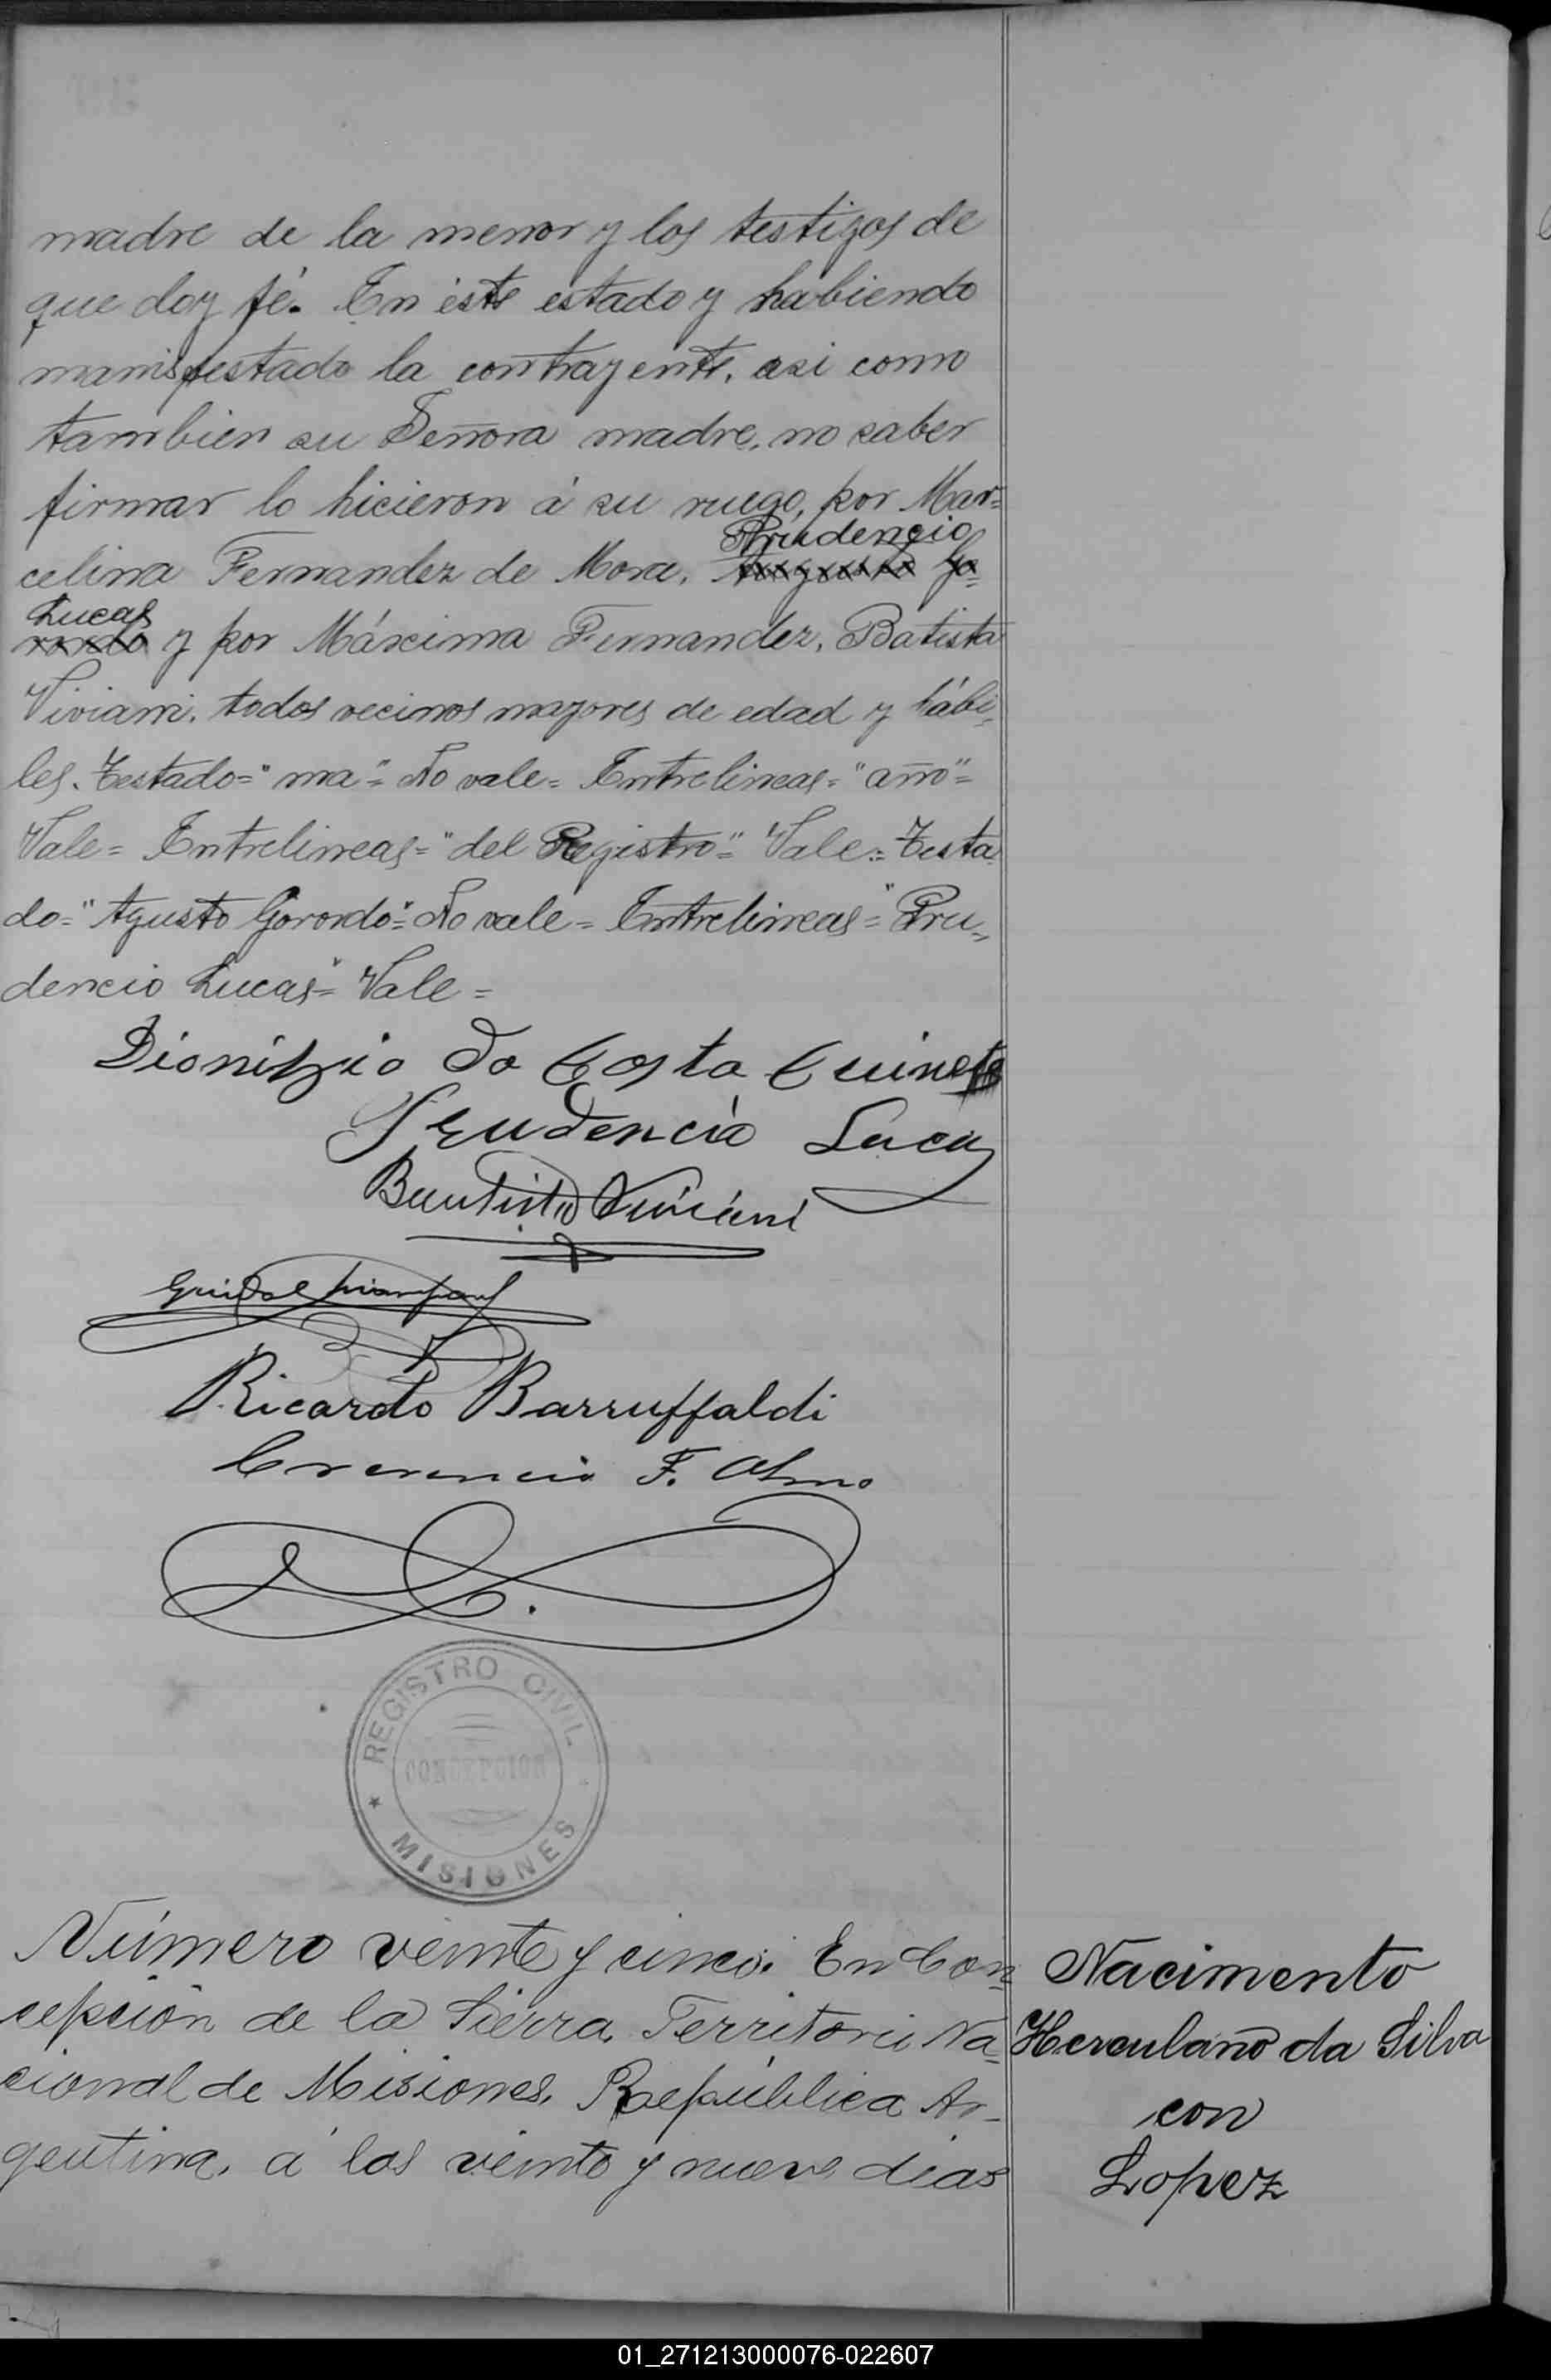 madre de la menor y los testigos de
que doy fé. En éste estado y habiendo
manisfestado la contrayente, asi como
tambien su Señora madre, no saber
firmar lo hicieron á su ruego, por Mar=
Prudencio
celina Fernandez de Mora, Augusto Go=
Lucas
rondo y por Máxima Fernandez, Batista
Viviani, todos vecinos mayores de edad y hábi=
les. Testado="ma"=No vale= Entrelineas="año"=
Vale= Entrelineas="del Registro"= Vale= Testa
do="Agusto Gorondo"=No vale= Entrelineas="Pru=
dencio Lucas"=Vale=
Dionizio da Costa
Prudencio Lucas
Bautista Viviani
Ricardo Barruffaldi
F. Olmo
REGISTRO CIVIL
CONCEPCION
MISIONES
Número veinte y cinco. En Con=
cepción de la Sierra, Territorio Na=
cional de Misiones, República Ar=
gentina, á los veinte y nueve dias
Nacimento
Herculano da Silva
con
Lopez
01_271213000076-022607